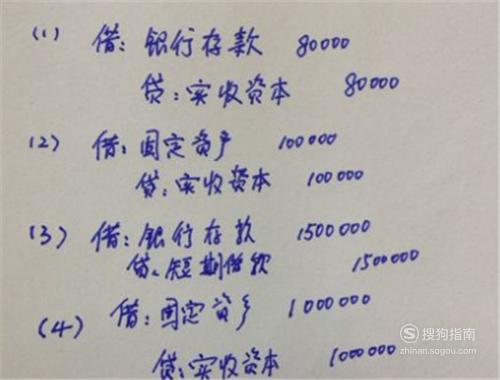 (1) 借：银行存款 80000
贷：实收资本 80000
(2) 借：固定资产 100000
贷：实收资本 100000
(3) 借：银行存款 1500000
贷：短期借款 1500000
(4) 借：固定资产 1000000
贷：实收资本 1000000
搜狗指南
zhinan.sogou.com